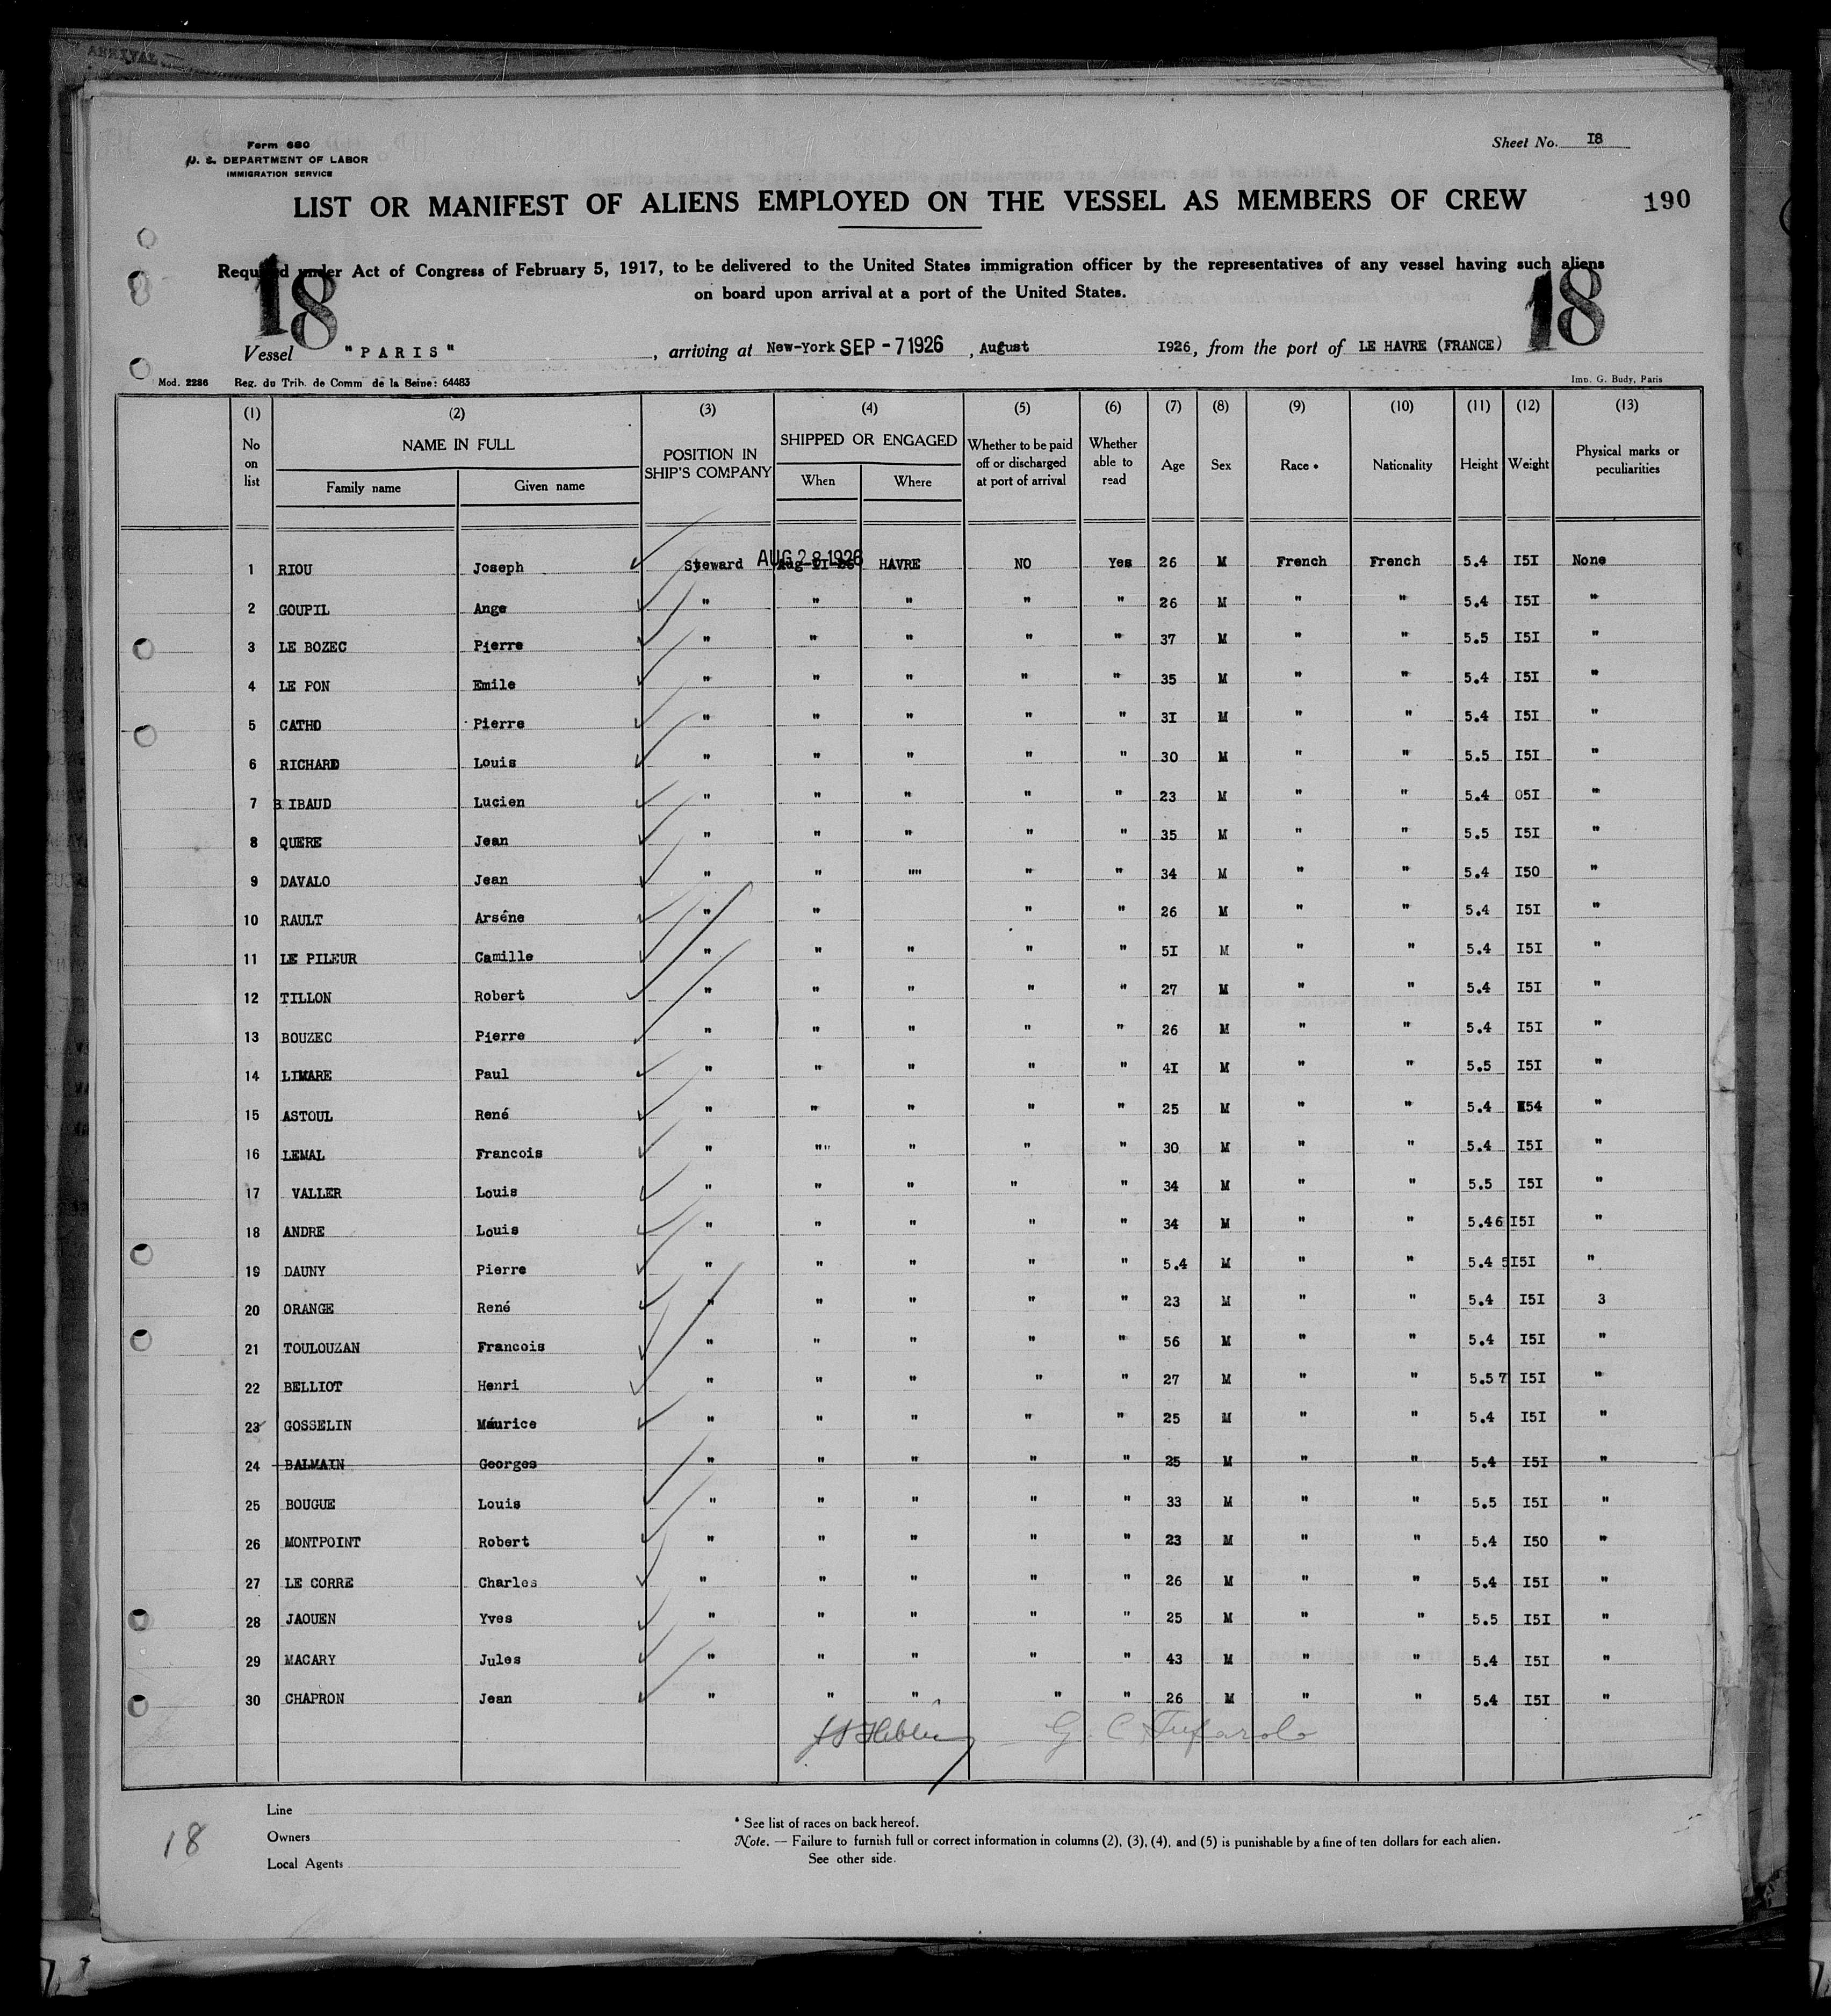 ARRIVAL
Form 680
U. S. DEPARTMENT OF LABOR
IMMIGRATION SERVICE
Sheet No. I8
LIST OR MANIFEST OF ALIENS EMPLOYED ON THE VESSEL AS MEMBERS OF CREW
190
Required under Act of Congress of February 5, 1917, to be delivered to the United States immigration officer by the representatives of any vessel having such aliens
on board upon arrival at a port of the United States.
18
18
Vessel "PARIS", arriving at New-York SEP - 7 1926, August 1926, from the port of LE HAVRE (FRANCE)
Mod. 2286 Reg. du Trib. de Comm de la Seine: 64483
Imp. G. Budy, Paris
(1) (2) (3) (4) (5) (6) (7) (8) (9) (10) (11) (12) (13)
No on list NAME IN FULL POSITION IN SHIP'S COMPANY SHIPPED OR ENGAGED Whether to be paid off or discharged at port of arrival Whether able to read Age Sex Race * Nationality Height Weight Physical marks or peculiarities
Family name Given name When Where
1 RIOU Joseph Steward AUG 28 1926 HAVRE NO Yes 26 M French French 5.4 I5I None
2 GOUPIL Ange " " " " " 26 M " " 5.4 I5I "
3 LE BOZEC Pierre " " " " " 37 M " " 5.5 I5I "
4 LE PON Emile " " " " " 35 M " " 5.4 I5I "
5 CATHO Pierre " " " " " 3I M " " 5.4 I5I "
6 RICHARD Louis " " " " " 30 M " " 5.5 I5I "
7 IBAUD Lucien " " " " " 23 M " " 5.4 05I "
8 QUERE Jean " " " " " 35 M " " 5.5 I5I "
9 DAVALO Jean " " "" " " 34 M " " 5.4 I50 "
10 RAULT Arséne " " " " 26 M " " 5.4 I5I "
11 LE PILEUR Camille " " " " " 5I M " " 5.4 I5I "
12 TILLON Robert " " " " " 27 M " " 5.4 I5I "
13 BOUZEC Pierre " " " " " 26 M " " 5.4 I5I "
14 LIMARE Paul " " " " " 4I M " " 5.5 I5I "
15 ASTOUL René " " " " " 25 M " " 5.4 I54 "
16 LEMAL Francois " "" " " " 30 M " " 5.4 I5I "
17 VALLER Louis " " " " " 34 M " " 5.5 I5I "
18 ANDRE Louis " " " " " 34 M " " 5.46 I5I "
19 DAUNY Pierre " " " " " 5.4 M " " 5.4 5I5I "
20 ORANGE René " " " " " 23 M " " 5.4 I5I 3
21 TOULOUZAN Francois " " " " " 56 M " " 5.4 I5I "
22 BELLIOT Henri " " " " " 27 M " " 5.57 I5I "
23 GOSSELIN Maurice " " " " " 25 M " " 5.4 I5I "
24 BALMAIN Georges " " " " " 25 M " " 5.4 I5I "
25 BOUGUE Louis " " " " " 33 M " " 5.5 I5I "
26 MONTPOINT Robert " " " " " 23 M " " 5.4 I50 "
27 LE CORRE Charles " " " " " 26 M " " 5.4 I5I "
28 JAOUEN Yves " " " " " 25 M " " 5.5 I5I "
29 MACARY Jules " " " " " 43 M " " 5.4 I5I "
30 CHAPRON Jean " " " " " 26 M " " 5.4 I5I "
G. C.
Line
Owners
Local Agents
18
* See list of races on back hereof.
Note. — Failure to furnish full or correct information in columns (2), (3), (4), and (5) is punishable by a fine of ten dollars for each alien.
See other side.